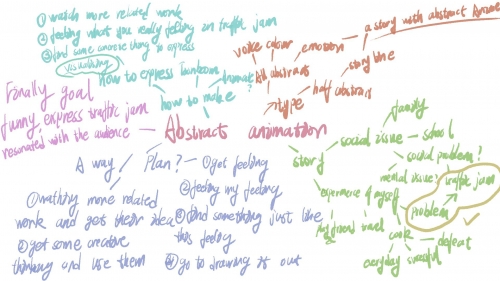 ① watch more related work
② feeling what you really feeling in traffic jam
③ find some annoying thing to express
visualizing
how to express
how to make?
Finally goal
funny, express traffic jam
resonated with the audience
Abstract animation
voice colour
emotion
a story with abstract
All abstract
story line
half abstract
type
story
social issue
family
school
social problems?
mental issue?
traffic jam
problem
experience of myself
friend travel
cook
defeat
everyday
A way
Plan?
① get feeling
② feeling my feeling
③ find something just like
this feeling
④ go to drawing it out
① wathing more related
work and get their idea
② get some creative
thinking and use them